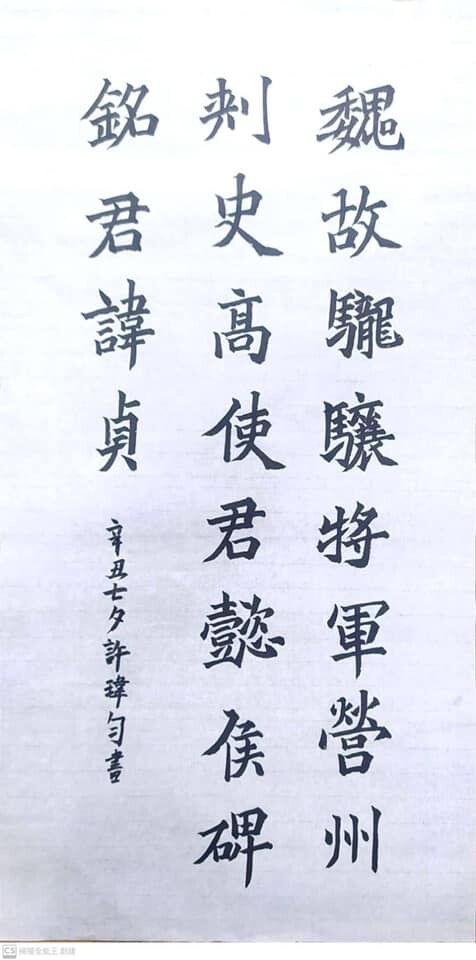 魏故驡驤將軍營州
刺史高使君懿侯碑
銘君諱貞
辛丑七夕許瑋勻書
CS 掃描全能王 創建